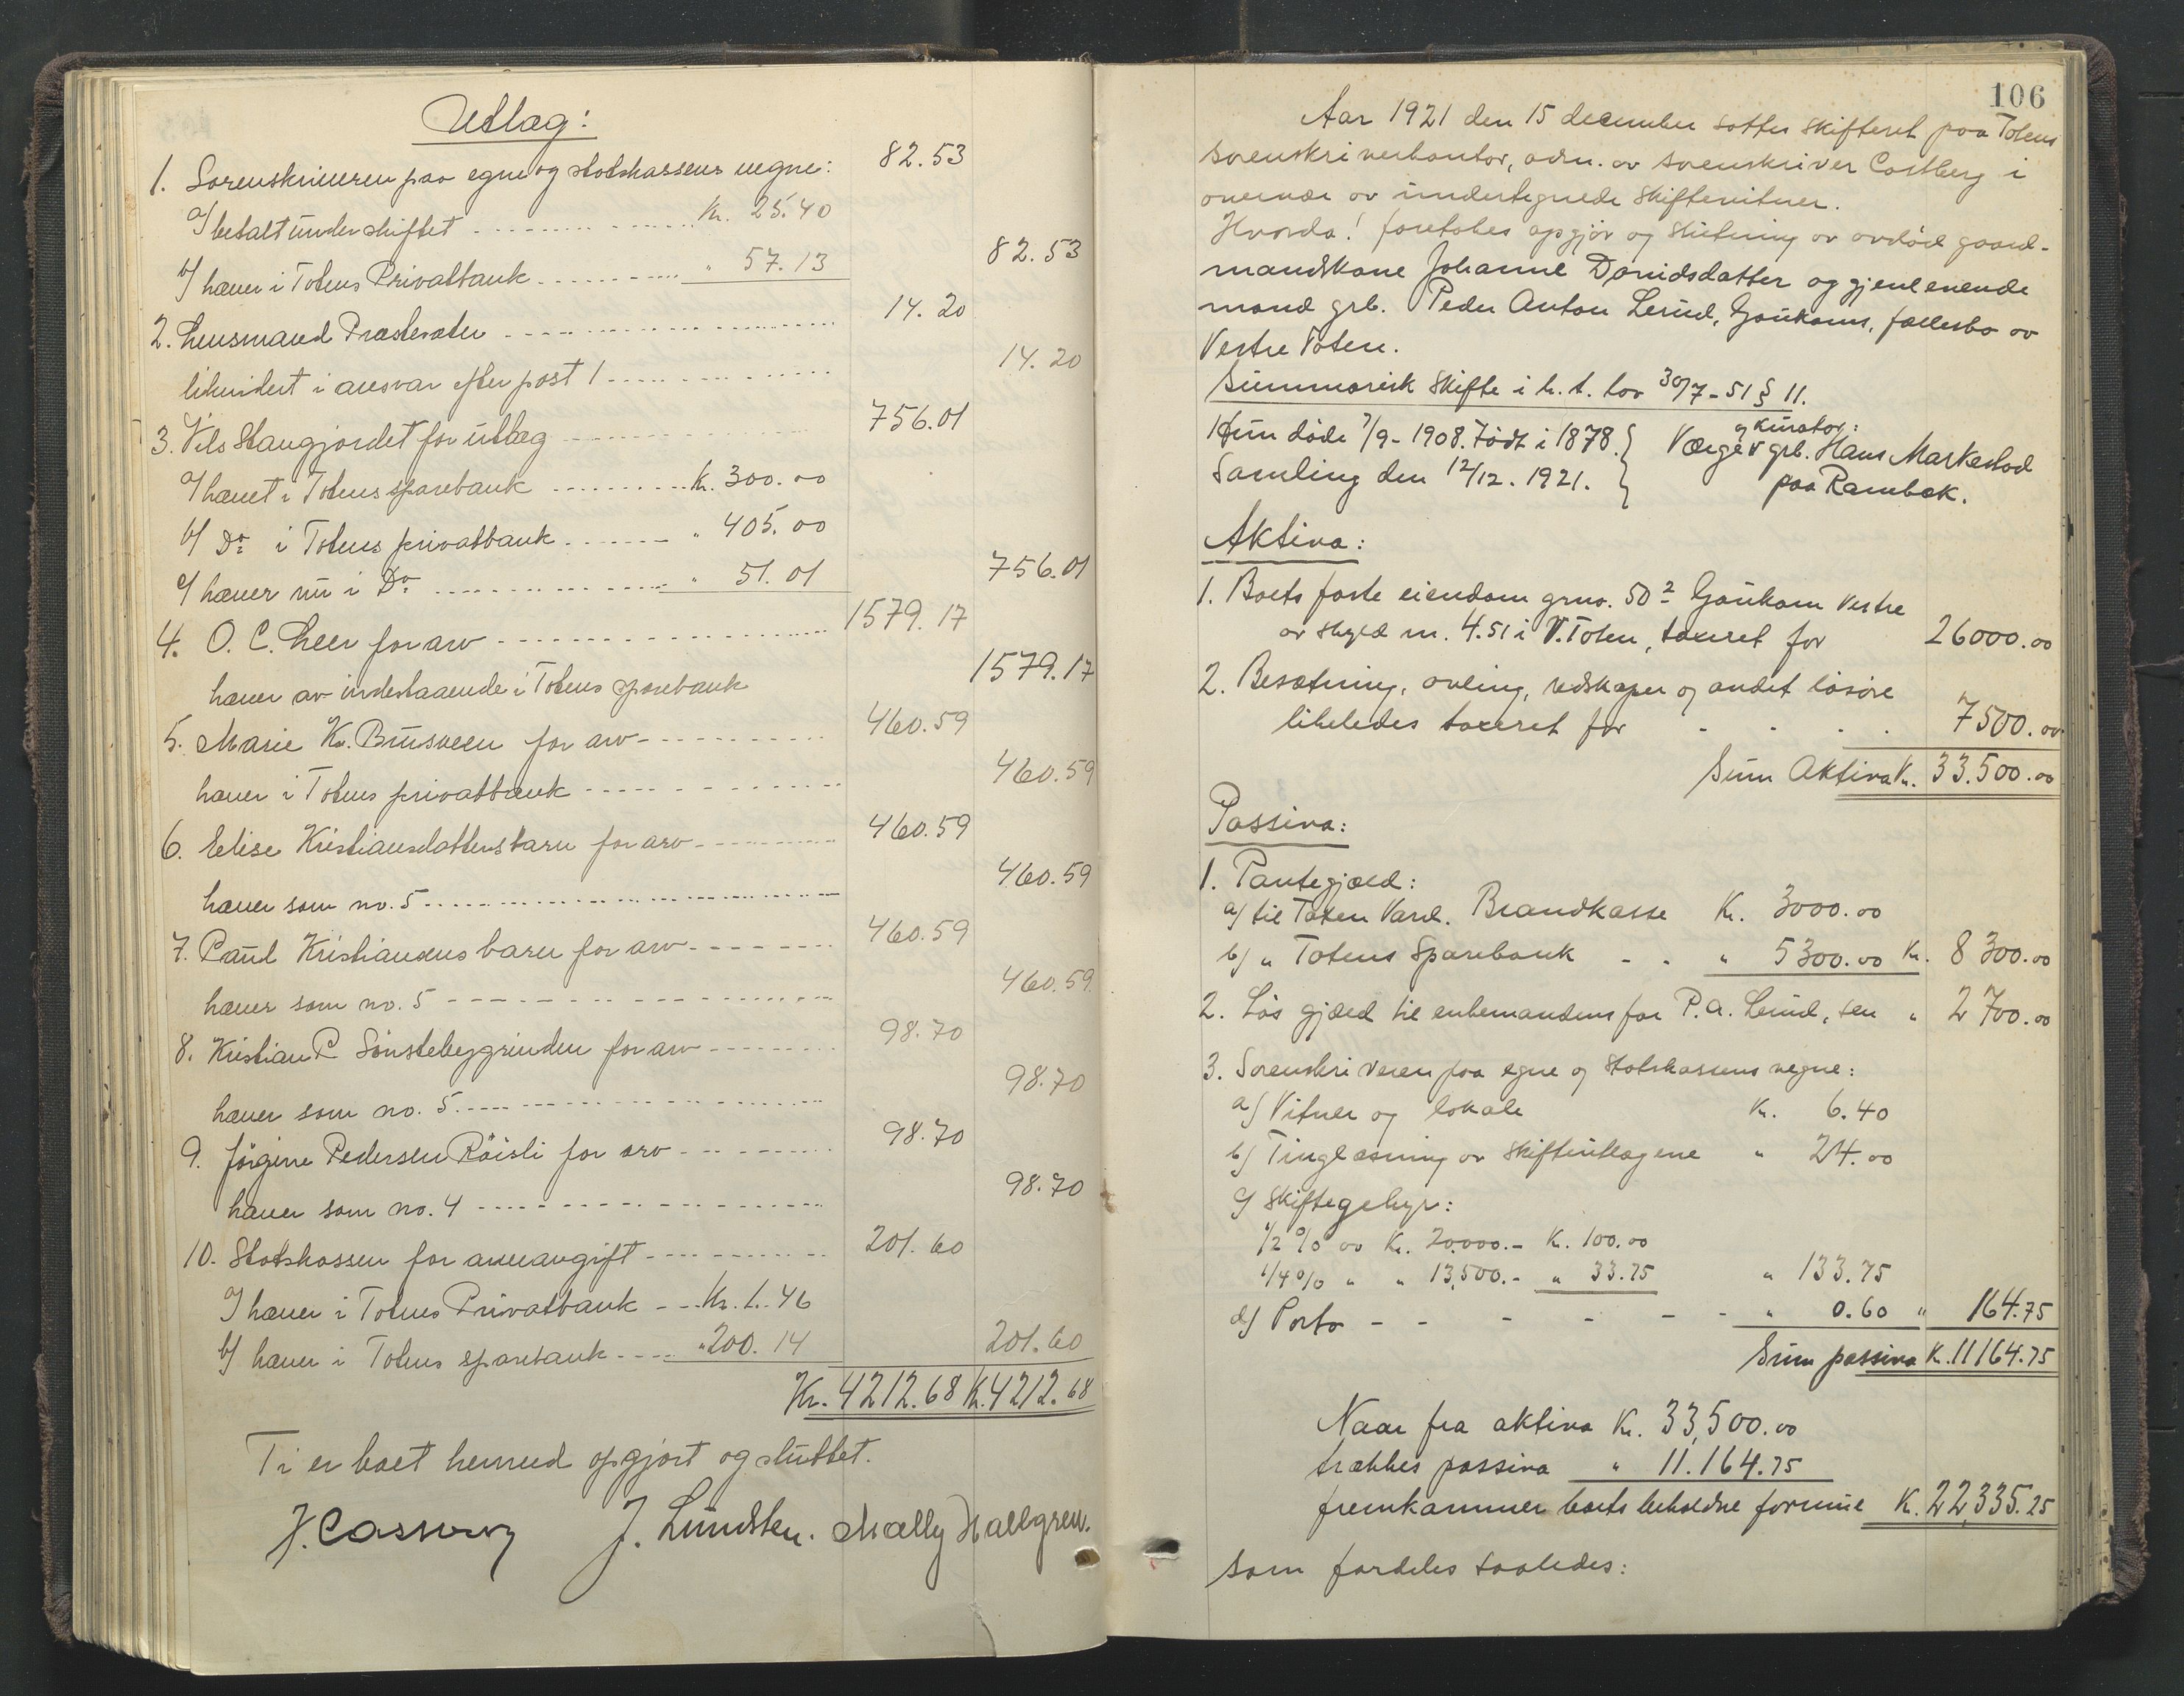 Utlæg:
1. Sorenskriveren paa egne og statskassens vegne: 82.53
a) betalt under skiftet Kr. 25.40
b) hæver i Totens Privatbank " 57.13 82.53
2. Lensmand Præsteseter 14.20
likvidert i ansvar efter post 1 14.20
3. Nils Stangjordet for utlæg 756.01
a) hævet i Totens sparebank Kr. 300.00
b) Do i Totens privatbank " 405.00
c) hæver nu i Do " 51.01 756.01
4. O. C. Leer for arv 1579.17
hæver av indestaaende i Totens sparebank 1579.17
5. Marie K. Brusveen for arv 460.59
hæver i Totens privatbank 460.59
6. Elise Kristiansdatters barn for arv 460.59
hæver som no. 5 460.59
7. Paul Kristiansens barn for arv 460.59
hæver som no. 5 460.59
8. Kristian P. Sönstebyggrinden for arv 98.70
hæver som no. 5 98.70
9. Jörgine Pedersen Röisli for arv 98.70
hæver som no. 4 98.70
10. Statskassen for arveavgift 201.60
a) hæver i Totens Privatbank Kr. 1.46
b) hæver i Totens sparebank " 200.14 201.60
Kr. 4212.68 Kr. 4212.68
Ti er boet hermed opgjort og sluttet.
J. Castberg J. Lundsten. Mally Hallgren.
106
Aar 1921 den 15 december sattes skifteret paa Totens
sorenskriverkontor, adm. av sorenskriver Castberg i
overvær av undertegnede skiftevitner.
Hvorda! foretokes opgjör og slutning av avdöd gaard-
mandskone Johanne Davidsdatter og gjenlevende
mand grb. Peder Anton Lerud, Gaukom, fællesbo av
Vestre Toten.
Summarisk skifte i h. t. lov 30/7-51 § 11.
Hun döde 7/9-1908. Födt i 1878. } Værge og kurator: grb. Hans Markestad
Samling den 12/12. 1921. } paa Rambæk.
Aktiva:
1. Boets faste eiendom grno. 50 2 Gaukom vestre
av skyld m. 4.51 i V. Toten, taxeret for 26000.00
2. Besætning, avling, redskaper og andet lösöre
likeledes taxeret for 7500.00
Sum Aktiva Kr. 33.500.00
Passiva:
1. Pantegjæld:
a) til Toten Vard. Brandkasse Kr. 3000.00
b) " Totens Sparebank " 5300.00 Kr. 8300.00
2. Lös gjæld til enkemandens far P. A. Lerud, sen " 2700.00
3. Sorenskriveren paa egne og Statskassens vegne:
a) Vitner og lokale Kr. 6.40
b) Tinglæsning av skifteutlægene " 24.00
c) Skiftegebyr:
1/2 % av Kr. 20,000.- Kr. 100.00
1/4 % " " 13,500.- " 33.75 " 133.75
d) Porto " 0.60 " 164.75
Sum passiva Kr. 11164.75
Naar fra aktiva Kr. 33,500.00
trækkes passiva " 11.164.75
fremkommer boets beholdne formue K. 22,335.25
som fordeles saaledes: